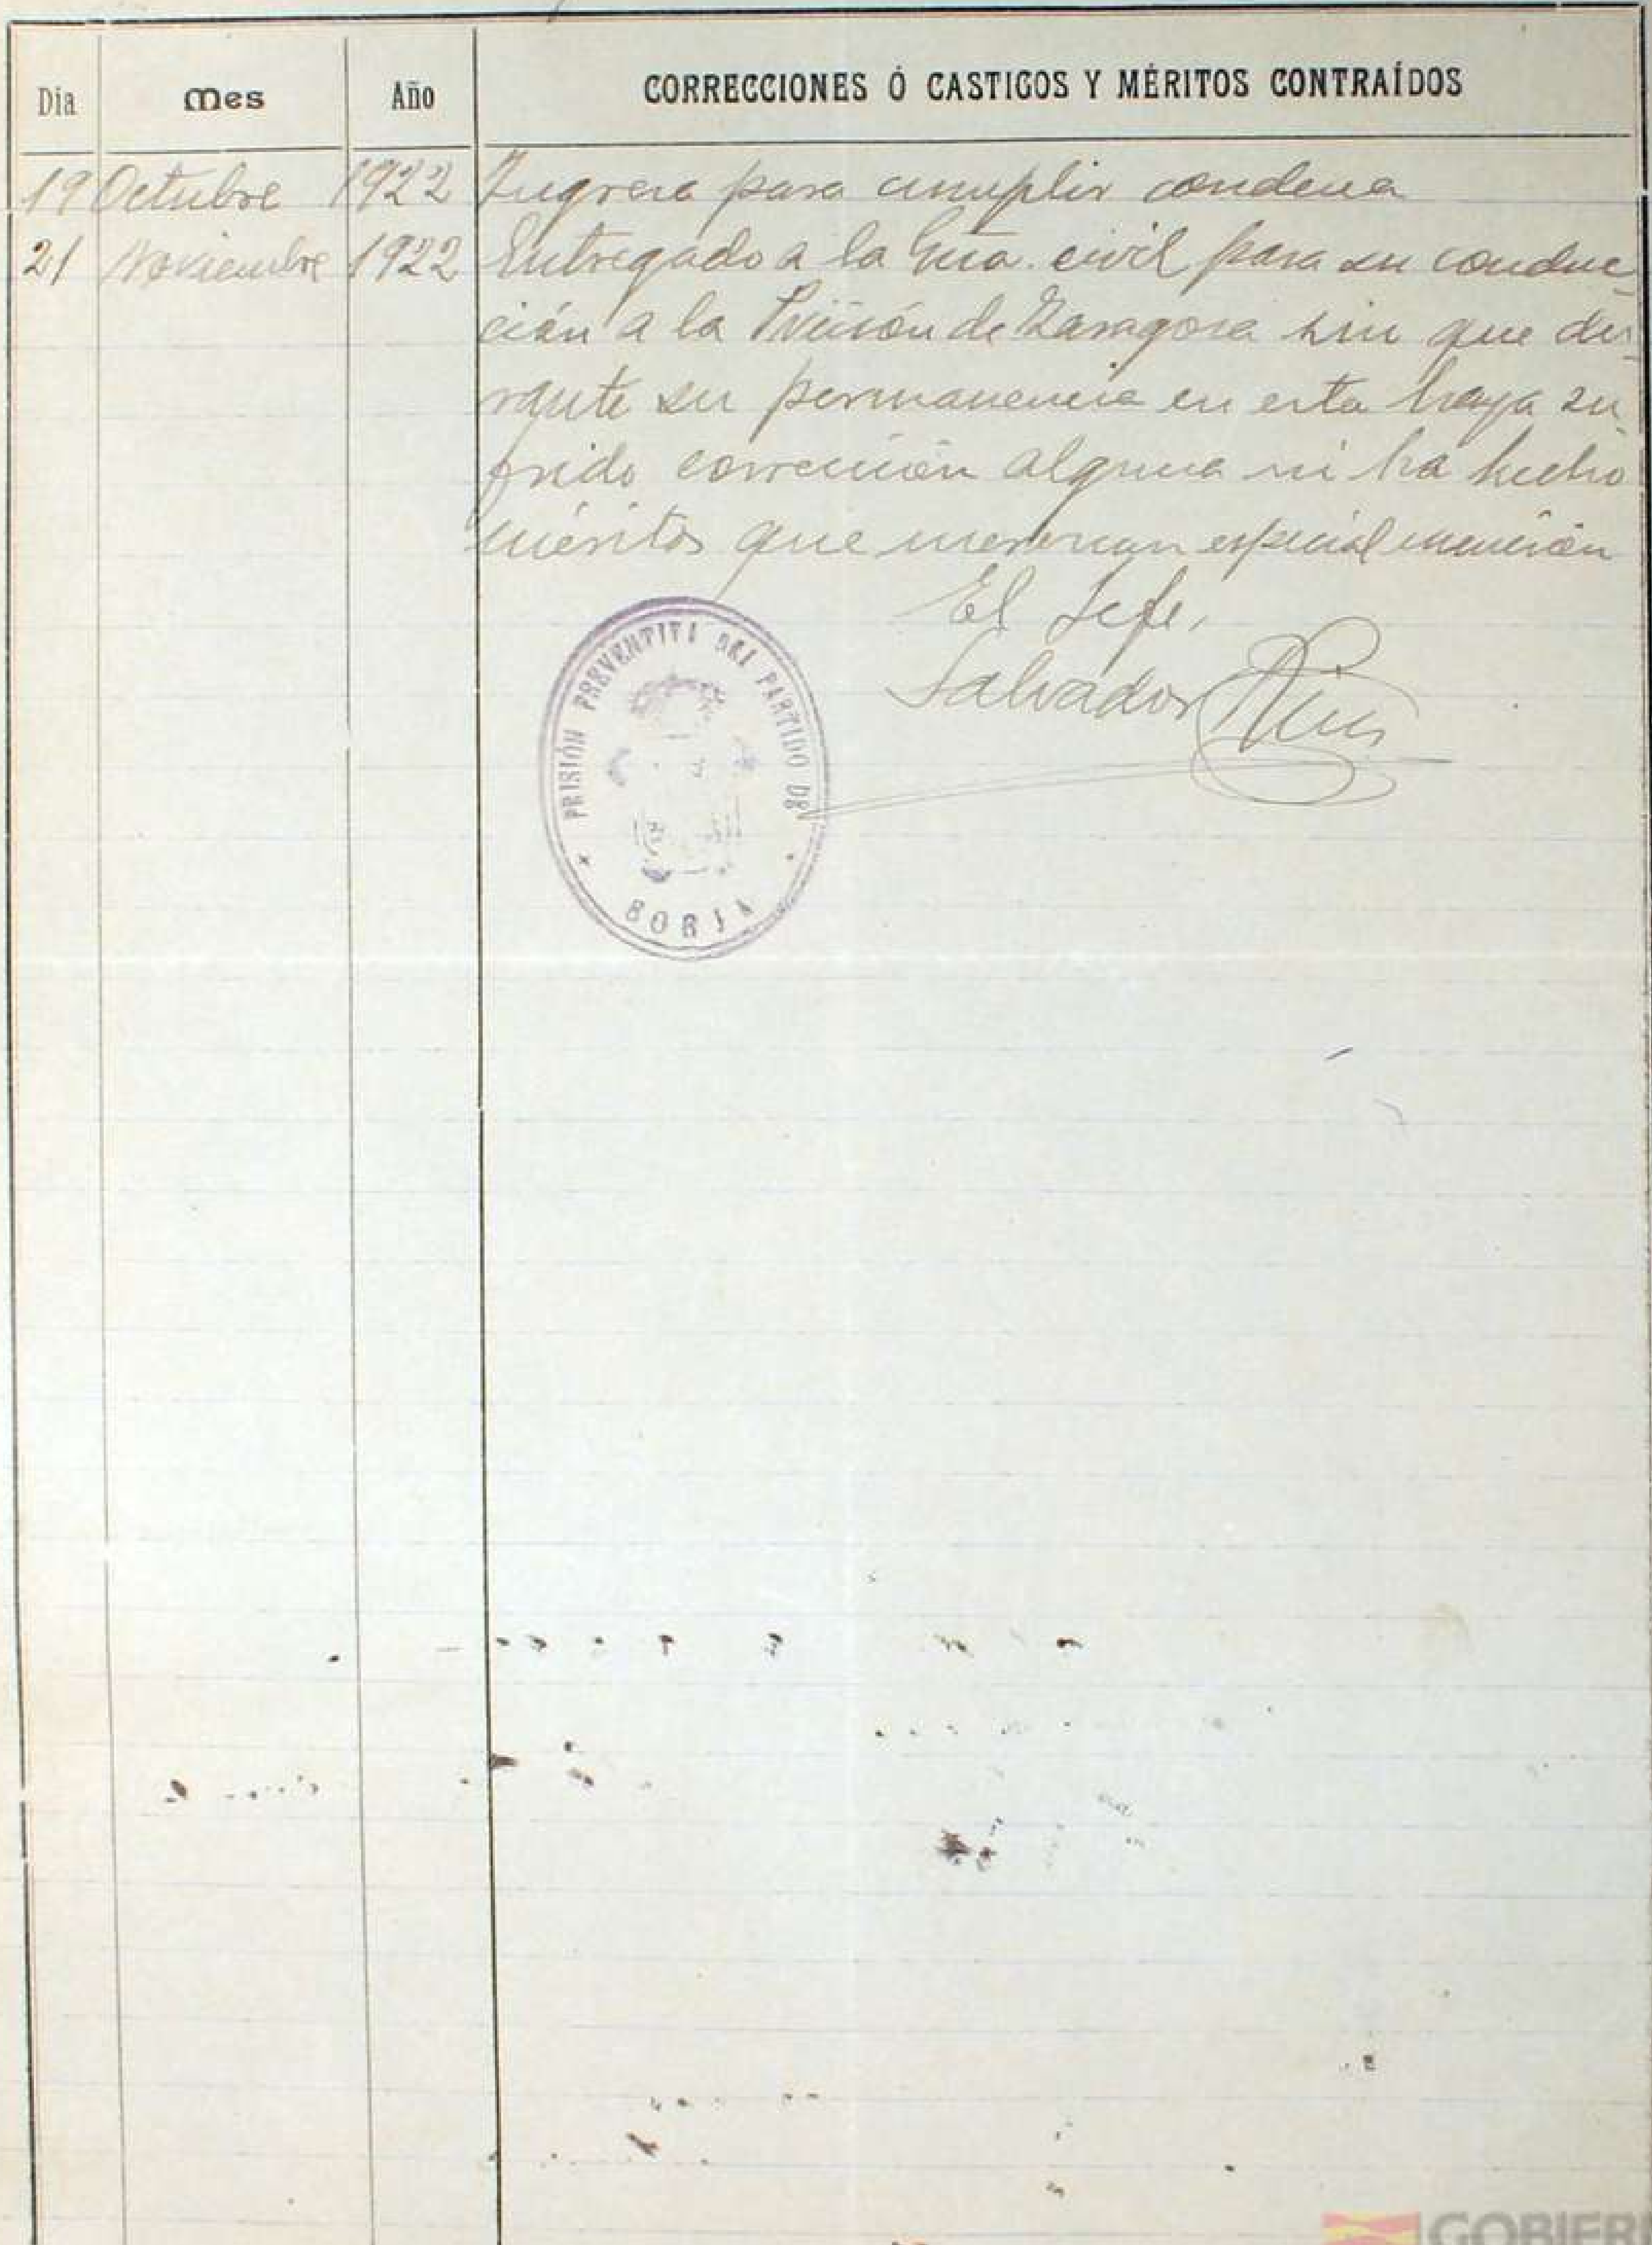 Dia Mes Año CORRECCIONES Ó CASTIGOS Y MÉRITOS CONTRAÍDOS
19 Octubre 1922 Ingresa para cumplir condena
21 Noviembre 1922 Entregado a la Gua. civil para su conduc
ción a la Prisión de Zaragoza sin que du
rante su permanencia en esta haya su
frido corrección alguna ni ha hecho
méritos que merezcan especial mención
El Jefe,
Salvador
PRISIÓN PREVENTIVA DEL PARTIDO DE
BORJA
GOBIER